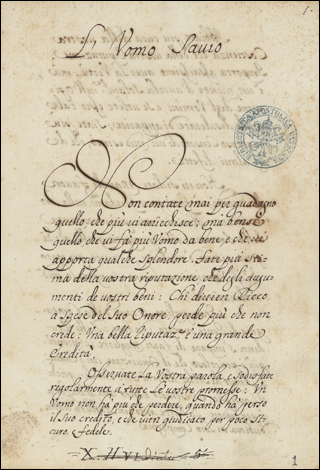 1.
L'Vomo Sauio
Non contate mai per guadagno
quello, che più vi arricchisce: mà bensì
quello che vi fà più Vomo da bene, e che vi
apporta qualche Splendore. Fate più sti-
ma della vostra riputazione che degli augu-
menti de vostri beni: Chi diuien Ricco
a Spese del Suo Onore, perde più che non
crede: Vna bella Riputaz.e è una grande
Eredità.
Osseruate La Vostra parola, e Sodisfate
regolarmente à tutte Le vostre promesse: Vn
Vomo non hà più che perdere, quando hà perso
il Suo credito, e che vien giudicato per poco Si-
curo, e Fedele.
1